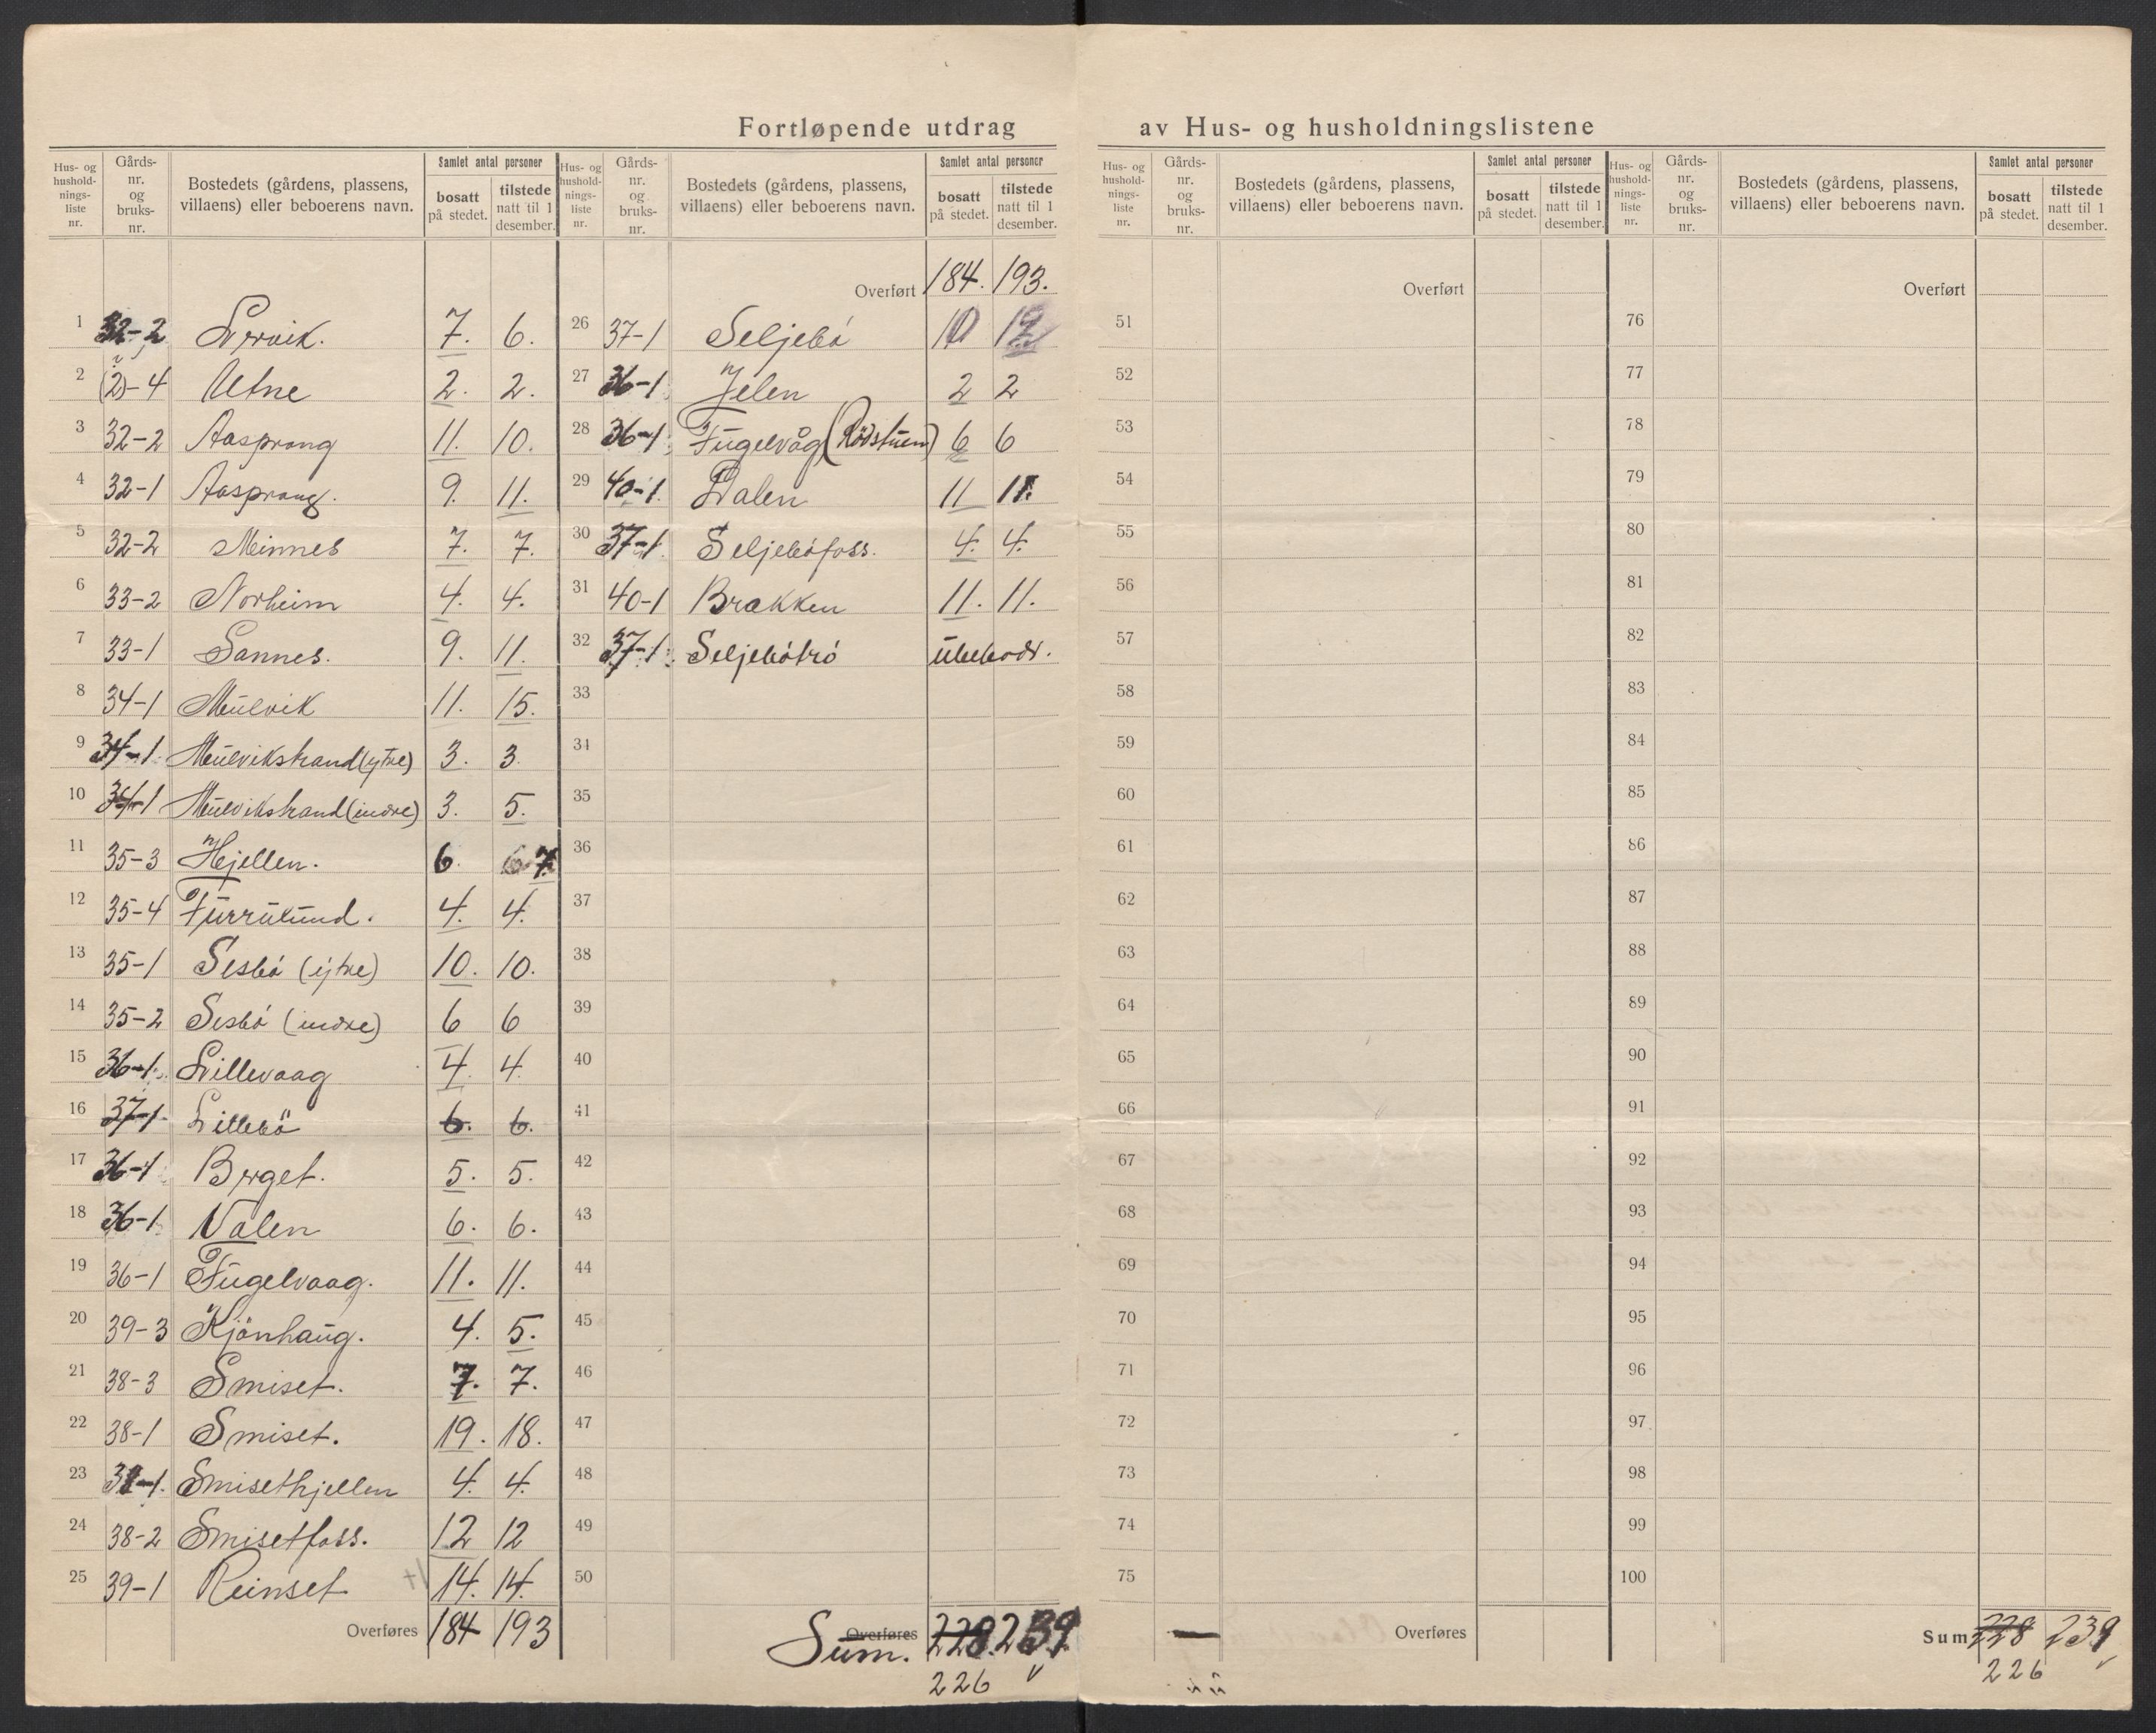 Fortløpende utdrag av Hus- og husholdningslistene
Hus- og husholdningsliste nr. Gårdsnr. og bruksnr. Bostedets (gårdens, plassens, villaens) eller beboerens navn. Samlet antal personer bosatt på stedet. tilstede natt til 1 desember.
1 32-2 Ervik. 7. 6.
2 (2)-4 Utne 2. 2.
3 32-2 Aasprong 11. 10.
4 32-1 Aasprong. 9. 11.
5 32-2 Minnes 7. 7.
6 33-2 Norheim 4. 4.
7 33-1 Sannes. 9. 11.
8 34-1 Mulvik 11. 15.
9 34-1 Mulvikstrand (ytre) 3. 3.
10 34-1 Mulvikstrand (indre) 3. 5.
11 35-3 Hjellen. 6. 7.
12 35-4 Furrulund. 4. 4.
13 35-1 Sesbó (ytre) 10. 10.
14 35-2 Sesbó (indre) 6 6
15 36-1. Lillevaag 4. 4.
16 37-1. Lillebö 6. 6.
17 36-1 Berget. 5. 5.
18 36-1 Valen 6. 6.
19 36-1 Fugelvaag. 11. 11.
20 39-3 Kjönhaug. 4. 5.
21 38-3 Smiset. 7. 7.
22 38-1 Smiset. 19. 18.
23 Smisethjellen 4. 4.
24 38-2 Smisetfoss. 12 12
25 39-1 Reinset 14. 14.
Overføres 184 193
Hus- og husholdningsliste nr. Gårdsnr. og bruksnr. Bostedets (gårdens, plassens, villaens) eller beboerens navn. Samlet antal personer bosatt på stedet. tilstede natt til 1 desember.
Overført 184. 193.
26 37-1 Seljebó 10 12
27 36-1 Jelen 2 2
28 36-1 Fugelvåg (Rödstuen) 6 6
29 40-1. Dalen 11 11.
30 37-1 Seljebófoss. 4. 4.
31 40-1 Brakken 11. 11.
32 37-1. Seljebótró ubebodt.
33
34
35
36
37
38
39
40
41
42
43
44
45
46
47
48
49
50
Overføres Sum. 228. 239.
226
Hus- og husholdningsliste nr. Gårdsnr. og bruksnr. Bostedets (gårdens, plassens, villaens) eller beboerens navn. Samlet antal personer bosatt på stedet. tilstede natt til 1 desember.
Overført
51
52
53
54
55
56
57
58
59
60
61
62
63
64
65
66
67
68
69
70
71
72
73
74
75
Overføres
Hus- og husholdningsliste nr. Gårdsnr. og bruksnr. Bostedets (gårdens, plassens, villaens) eller beboerens navn. Samlet antal personer bosatt på stedet. tilstede natt til 1 desember.
Overført
76
77
78
79
80
81
82
83
84
85
86
87
88
89
90
91
92
93
94
95
96
97
98
99
100
Sum 228 239
226